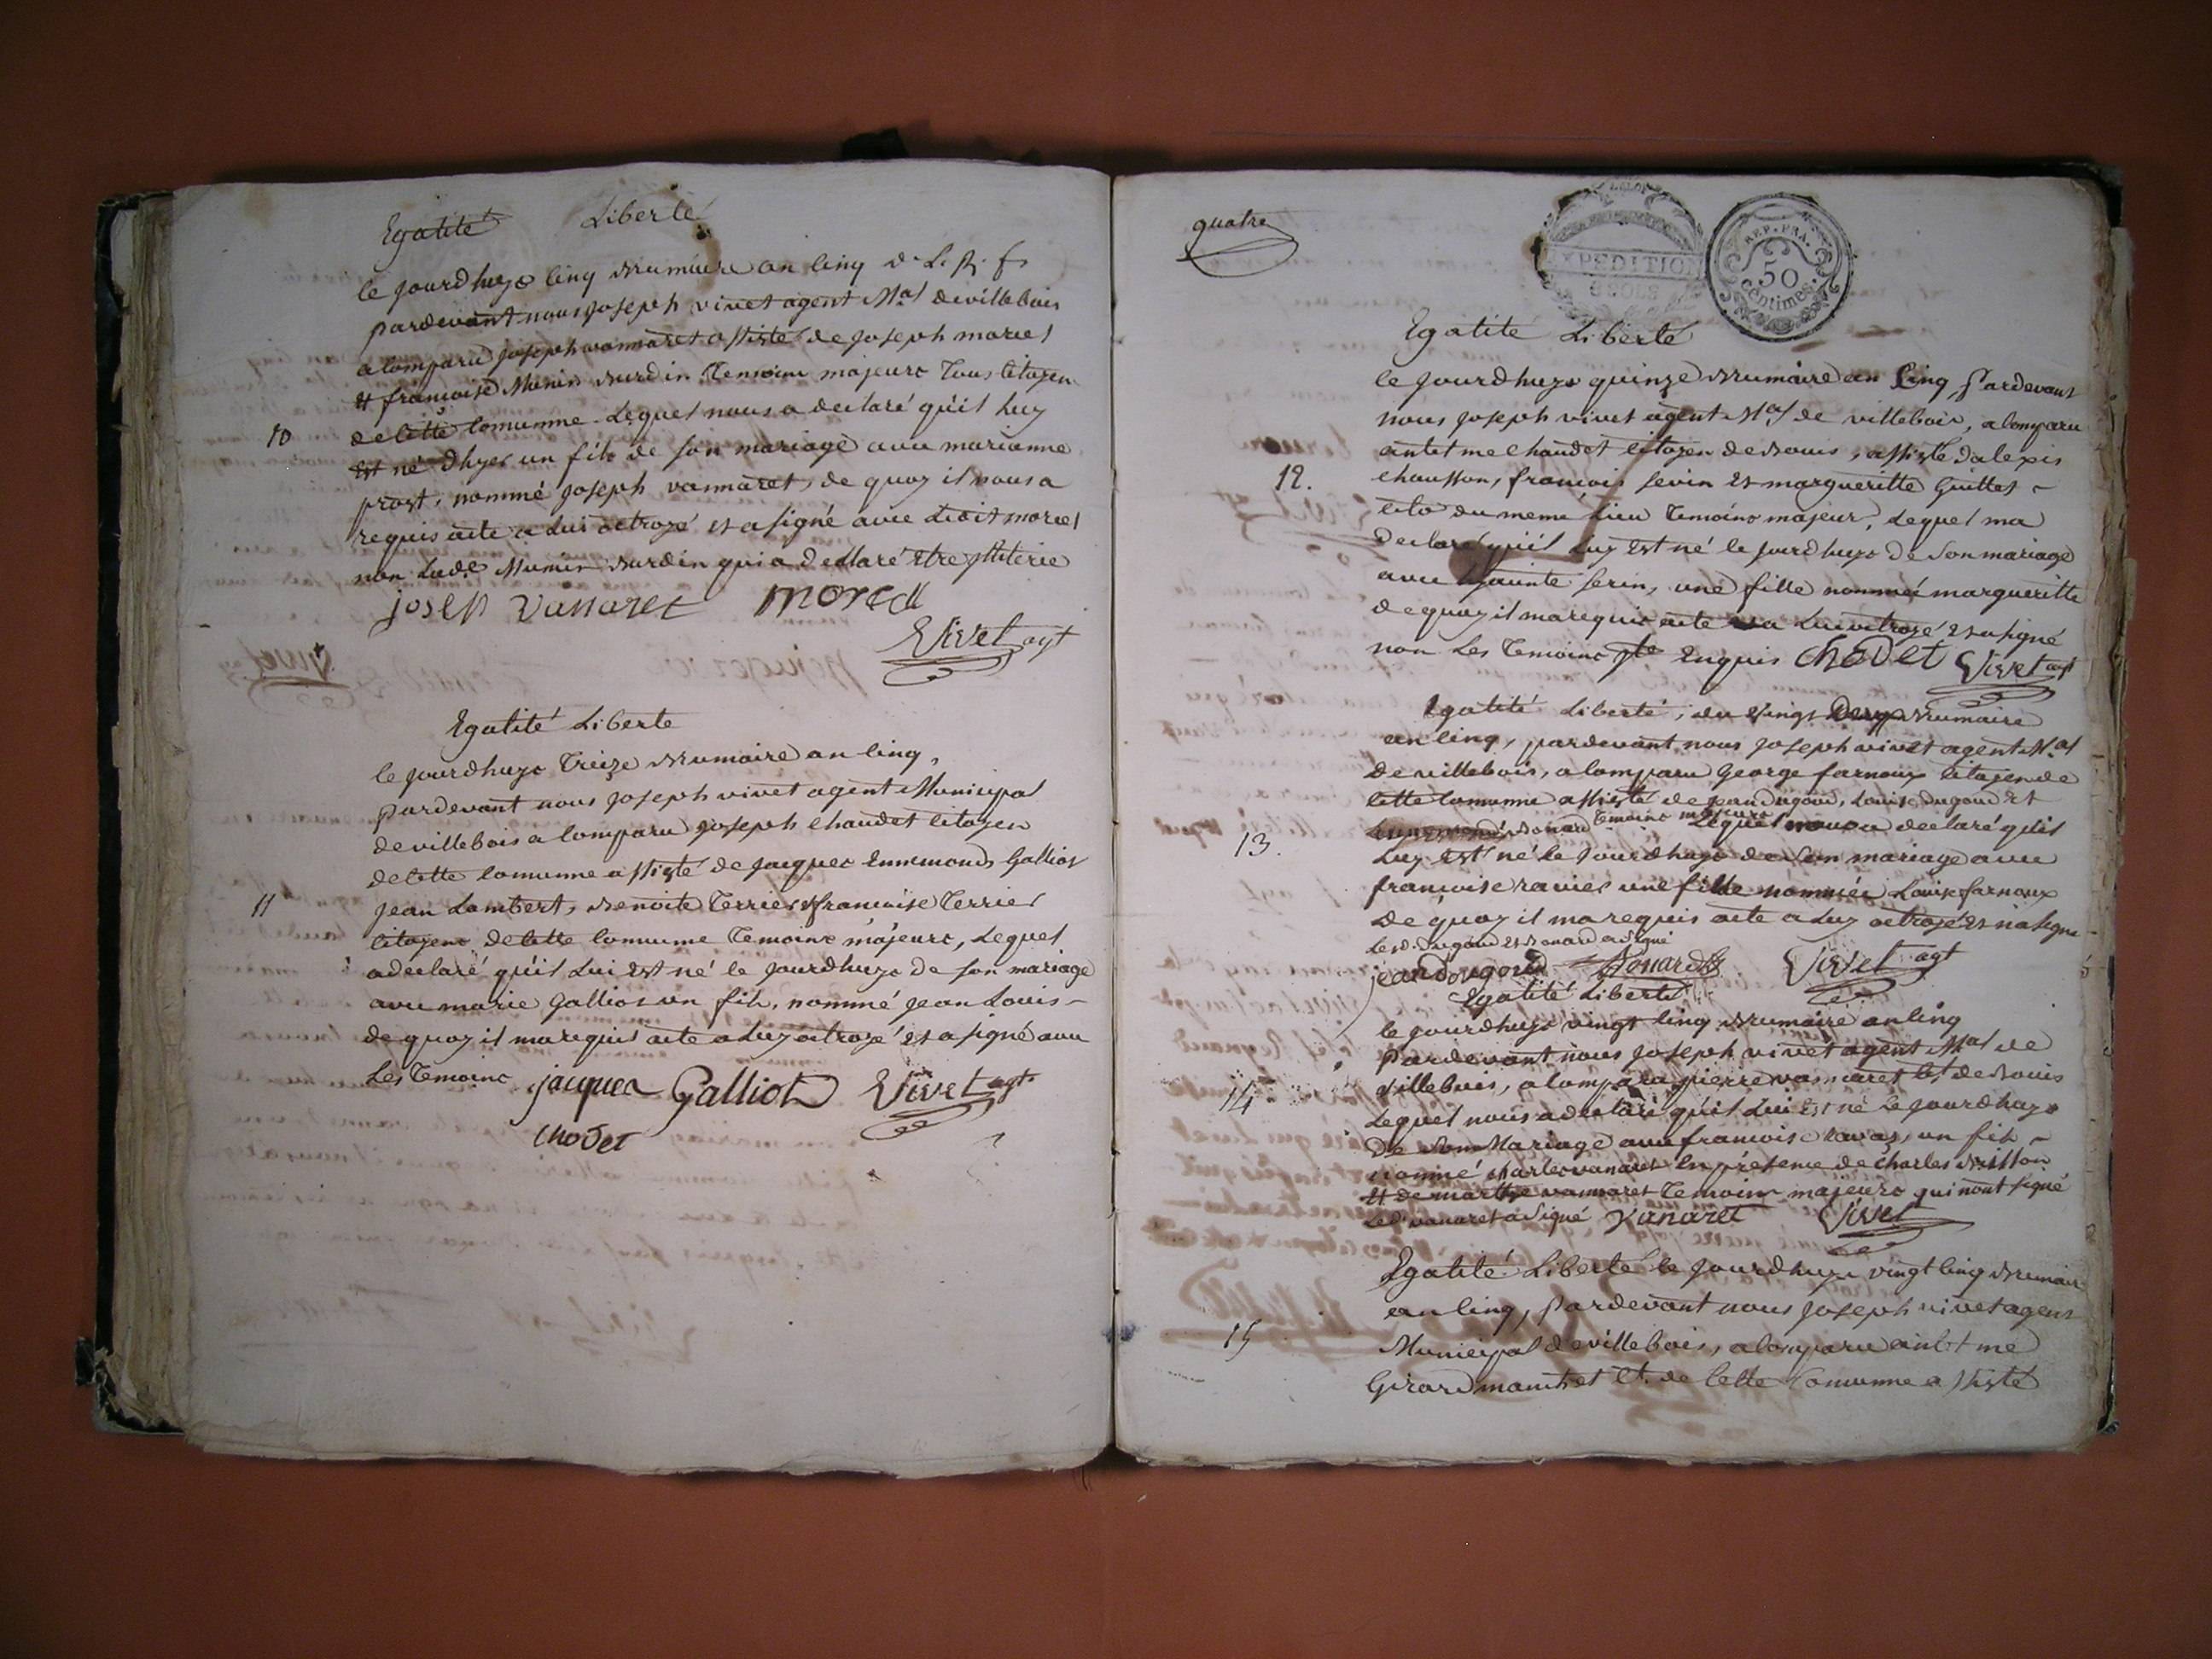 Egalité Liberté
le jourdhuyo cinq Brumaire an cinq d. L. R. f.
pardevant nous joseph vivet agent Mal de villebois
a comparu joseph vannaret assisté de joseph morel
et francoise Munin Burdin Temoins majeurs Tous citoyen
10
de cette comumne. Lequel nous a declaré quil Luy
est né dhyer un fils de son mariage avec marianne
prost, nommé joseph vannaret, de quoy il nous a
requis acte a Lui octroyé et a signé avec Ledit morel
non Lade Munin Burdin qui a declaré etre illiterie
joseph vannaret morell
Vivet agt
Egalité Liberté
le jourdhuyo Treize Brumaire an cinq,
pardevant nous joseph vivet agent Municipal
de villebois a comparu joseph chaudet citoyen
de cette comunne assisté de jacques Ennemonds Galliot
11
jean Lambert, Benoite Terrier & francoise Terrier
citoyens de cette comumne Temoins majeurs, Lequel
a declaré quil Lui est né le jourdhuyo de son mariage
avec marie Galliot un fils, nommé jean Louis
de quoy il ma requis acte a Luy octroyé et a signé avec
Les Temoins jacques Galliot Vivet agt
chodet
quatre
EXPEDITION
REP. FRA.
50
centimes.
Egalité Liberté
le jourdhuyo quinze Brumaire an cinq, Pardevant
nous joseph vivet agent Mal de villebois, a comparu
antelme chaudet citoyen de Bouis, assisté dalexis
12.
chausson, francois serin et margueritte Guittet
cito du meme Lieu Temoins majeur, Lequel ma
declaré quil Luy est né le jourdhuyo de son mariage
avec serin, une fille nommée margueritte
de quoy il ma requis acte a Lui octroyé et a signé
non Les Temoins pte Enquis Chodet Vivet agt
Egalité Liberté, du vingt Deux Brumaire
an cinq, pardevant nous joseph vivet agent Mal
de villebois, a comparu George farnoux citoyen de
cette comunne assisté de jean dugoud, Louise dugoud et
Ennemond Bonard Temoins majeurs Lequel nous a declaré quil
13.
Luy est né le jourdhuyo de son mariage avec
francoise ravier une fille nommée Louise farnoux
De quoy il ma requis acte a Luy octroyé et na signé
Led. dugoud et Bonard a signé
jean Dougoud Bonard Vivet agt
Egalité Liberté
le jourdhuyo vingt cinq Brumaire an cinq
Pardevant nous joseph vivet agent Mal de
14
villebois, a comparu pierre vannaret ct de Bouis
Lequel nous a declaré quil Lui est né Le jourdhuyo
De son Mariage avec francoise ravaz, un fils
nommé charles vanaret En présence de charles Brisson
et de marthe vannaret Temoins majeurs qui nont signé
Led. vanaret a signé Vanaret Vivet
Egalité Liberté le jourdhuyo vingt cinq Brumaire
an cinq, Pardevant nous joseph vivet agent
15
Municipal de villebois, a comparu antelme
Girard manchet Ct. de cette Comunne assisté